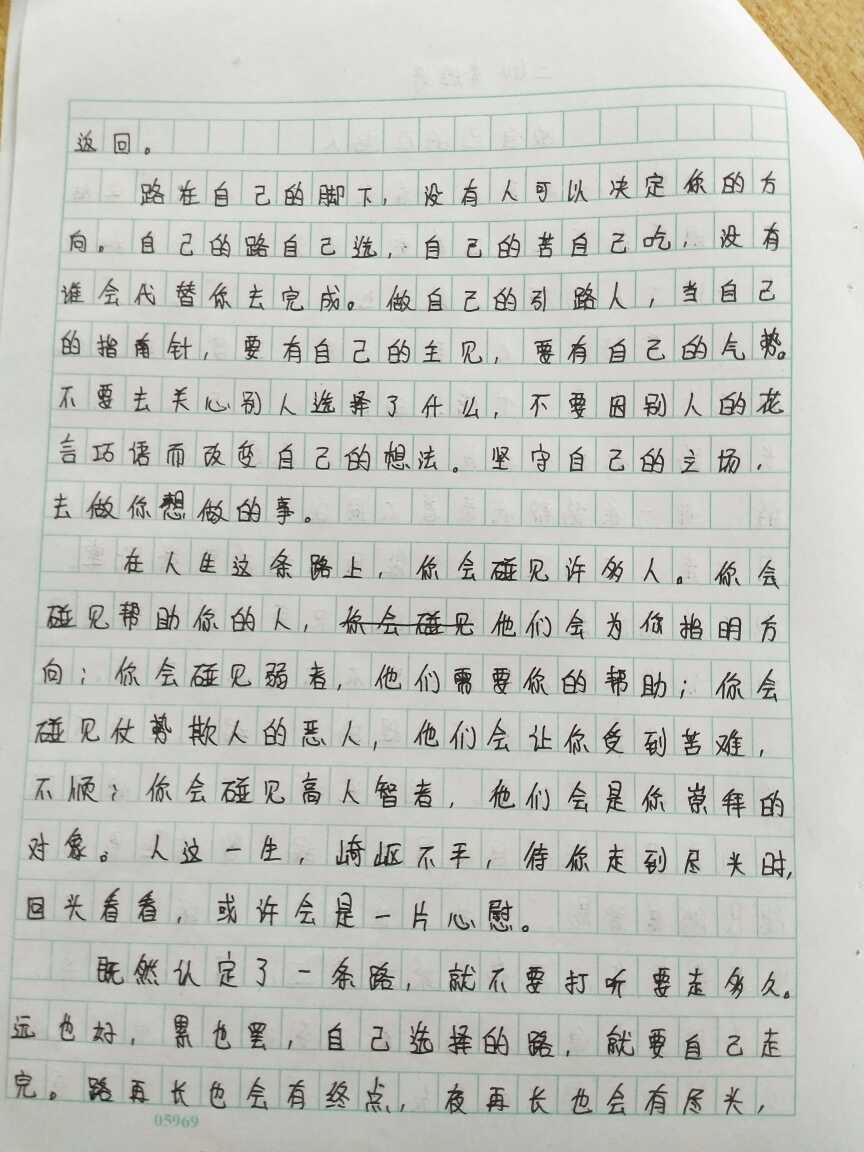 返回。
路在自己的脚下，没有人可以决定你的方
向。自己的路自己选，自己的苦自己吃，没有
谁会代替你去完成。做自己的引路人，当自己
的指南针，要有自己的主见，要有自己的气势。
不要去关心别人选择了什么，不要因别人的花
言巧语而改变自己的想法。坚守自己的立场，
去做你想做的事。
在人生这条路上，你会碰见许多人。你会
碰见帮助你的人，你会碰见他们会为你指明方
向；你会碰见弱者，他们需要你的帮助；你会
碰见仗势欺人的恶人，他们会让你受到苦难，
不顺；你会碰见高人智者，他们会是你崇拜的
对象。人这一生，崎岖不平，待你走到尽头时，
回头看看，或许会是一片心慰。
既然认定了一条路，就不要打听要走多久。
远也好，累也罢，自己选择的路，就要自己走
完。路再长也会有终点，夜再长也会有尽头，
05969